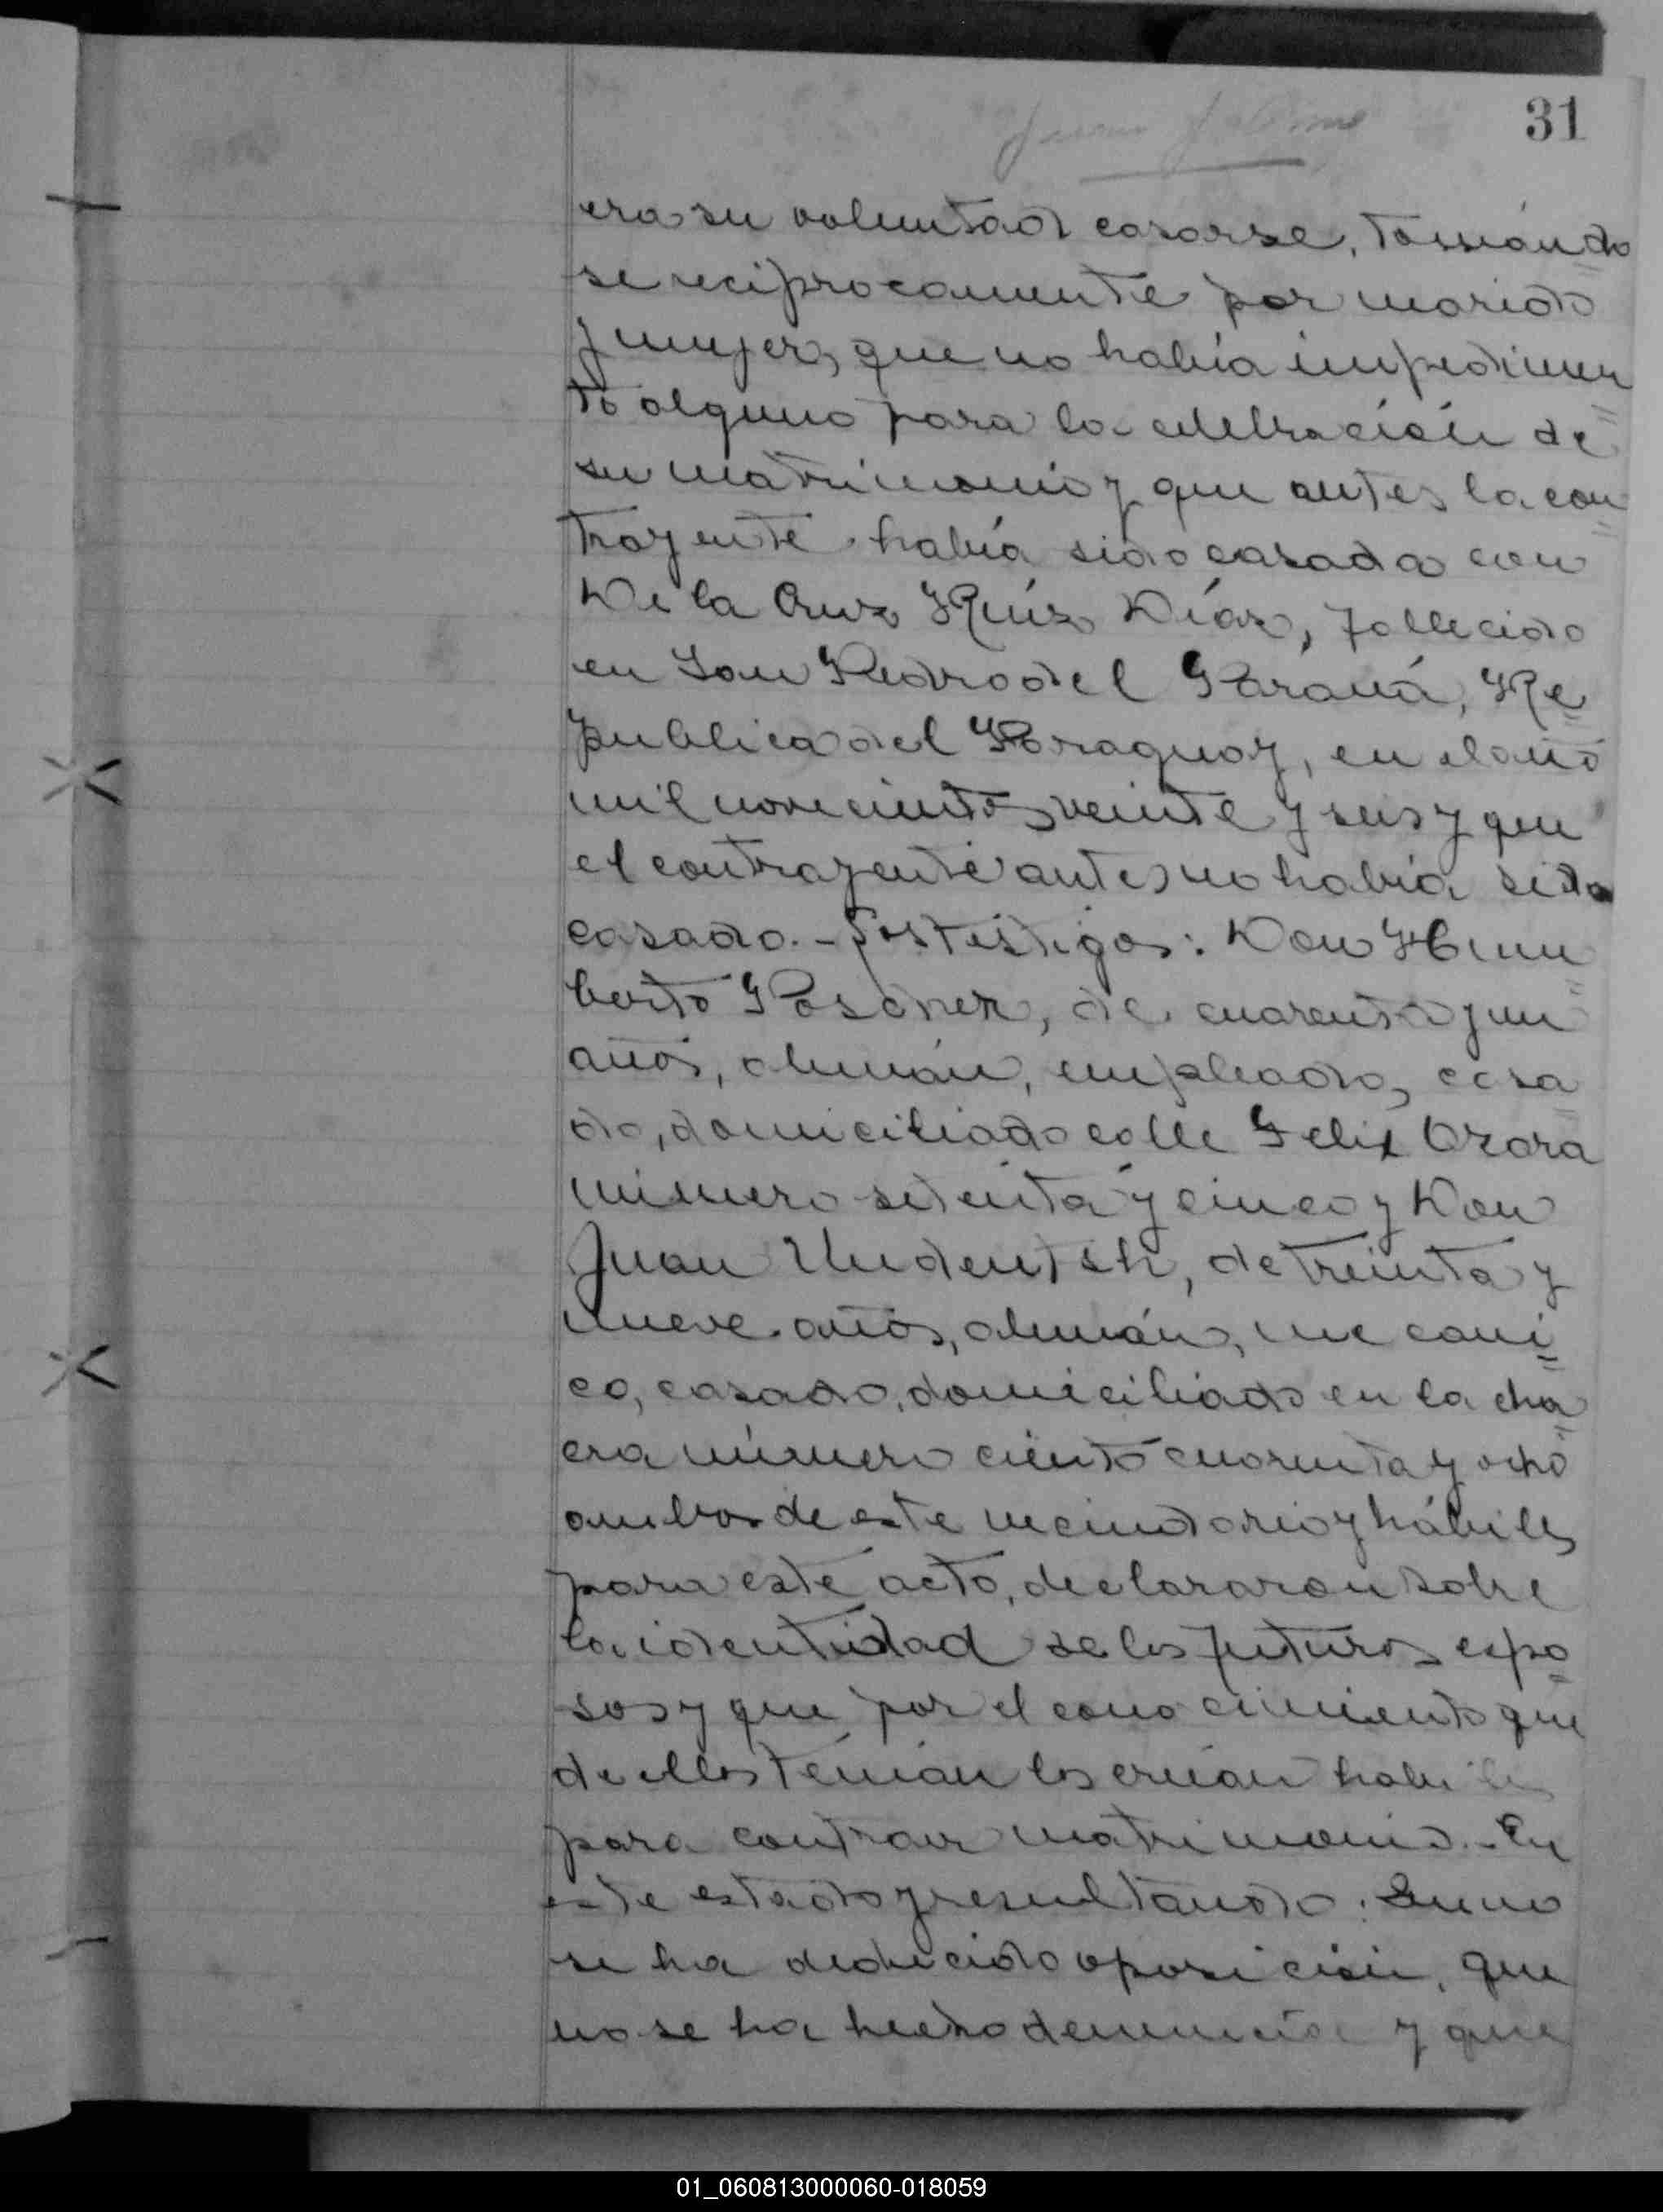 31
era su voluntad casarse, tomándo
se reciprocamente por marido
y mujer, que no había impedimen
to alguno para la celebración de
su matrimonio y que antes la con
trayente había sido casada con
De la Cruz Ruíz Díaz, fallecido
en San Pedro del Paraná, Re
publica del Paraguay, en el año
mil novecientos veinte y seis y que
el contrayente antes no había sido
casado.- Los testigos: Don Hum
berto Poschner, de cuarenta y un
años, alemán, empleado, casa
do, domiciliado calle Felix Azara
número setenta y cinco y Don
Juan Undeutsh, de treinta y
nueve años, alemán, mecani
co, casado, domiciliado en la cha
cra número ciento cuarenta y ocho
ambos de este vecindario y hábiles
para este acto, declararon sobre
la identidad de los futuros espo
sos y que por el conocimiento que
de ellos tenían los creían habiles
para contraer matrimonio.- En
este estado y resultando: Que no
se ha deducido oposición, que
no se ha hecho denuncia y que
01_060813000060-018059